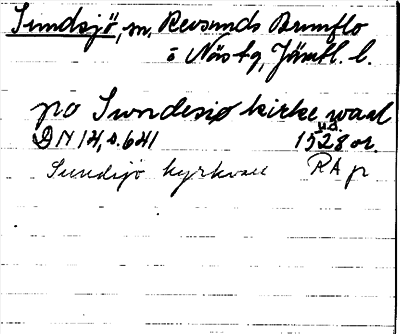 Sundsjö, m. Revsunds Brunflo
o Näs tg, Jämtl. l.
po Sundesiø kirke waal
DN 14, s. 641 1528 u.d. or.
Sundsjö kyrkvall RA p